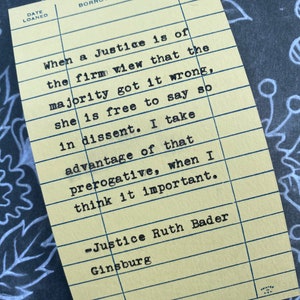 DATE LOANED
When a Justice is of
the firm view that the
majority got it wrong,
she is free to say so
in dissent. I take
advantage of that
prerogative, when I
think it important.
-Justice Ruth Bader
Ginsburg